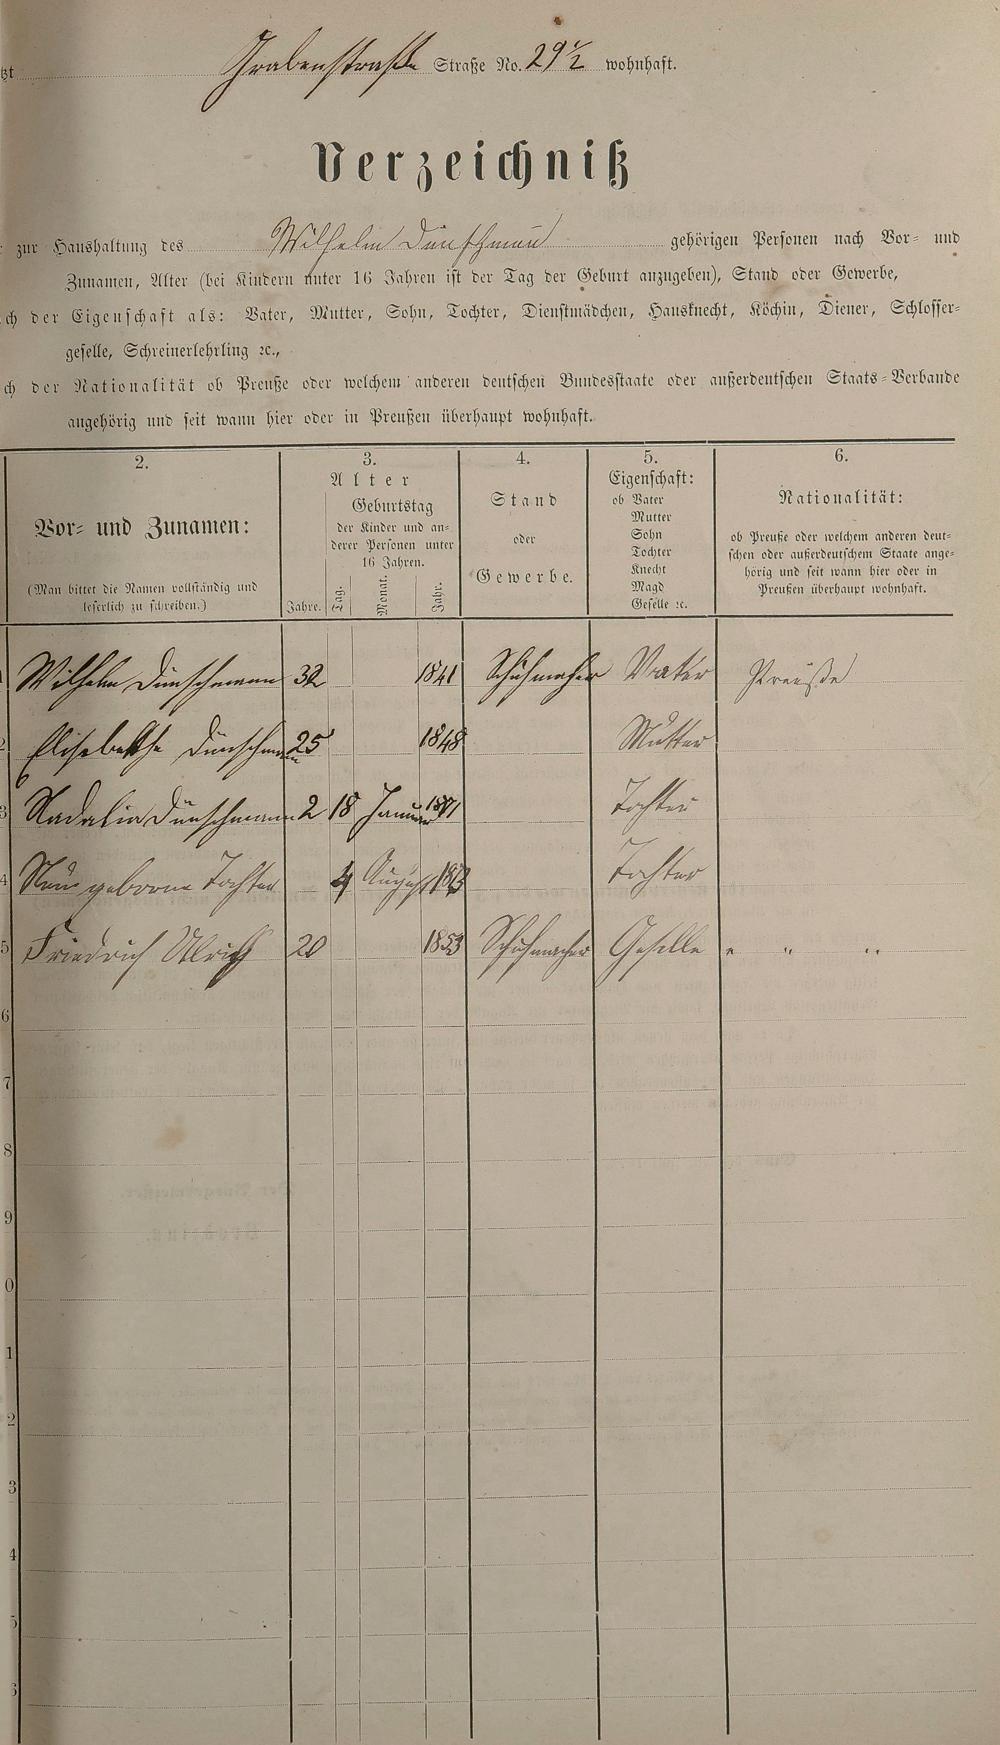 Grabenstraße Straße No. 29 1/2 wohnhaft.
Verzeichniß
zur Haushaltung des Wilhelm Dünschmann gehörigen Personen nach Vor- und
Zunamen, Alter (bei Kindern unter 16 Jahren ist der Tag der Geburt anzugeben), Stand oder Gewerbe,
der Eigenschaft als: Vater, Mutter, Sohn, Tochter, Dienstmädchen, Hausknecht, Köchin, Diener, Schlosser-
geselle, Schreinerlehrling ꝛc.,
der Nationalität ob Preuße oder welchem anderen deutschen Bundesstaate oder außerdeutschen Staats-Verbande
angehörig und seit wann hier oder in Preußen überhaupt wohnhaft.
2.
Vor- und Zunamen:
(Man bittet die Namen vollständig und
leserlich zu schreiben.)
3.
Alter
Jahre.
Geburtstag
der Kinder und an-
derer Personen unter
16 Jahren.
Tag. Monat. Jahr.
4.
Stand
oder
Gewerbe.
5.
Eigenschaft:
ob Vater
Mutter
Sohn
Tochter
Knecht
Magd
Geselle ꝛc.
6.
Nationalität:
ob Preuße oder welchem anderen deut-
schen oder außerdeutschem Staate ange-
hörig und seit wann hier oder in
Preußen überhaupt wohnhaft.
Wilhelm Dünschmann 32 1841 Schuhmacher Vater Preuße
2 Elisebethe Dünschmann 25 1848 Mutter
3 Nadalia Dünschmann 2 18 Januar 1871 Tochter
4 Neu geborne Tochter 4 August 1873 Tochter
5 Friedrich Ulrich 20 1853 Schuhmacher Geselle " " "
6
7
8
9
0
1
2
3
4
5
6